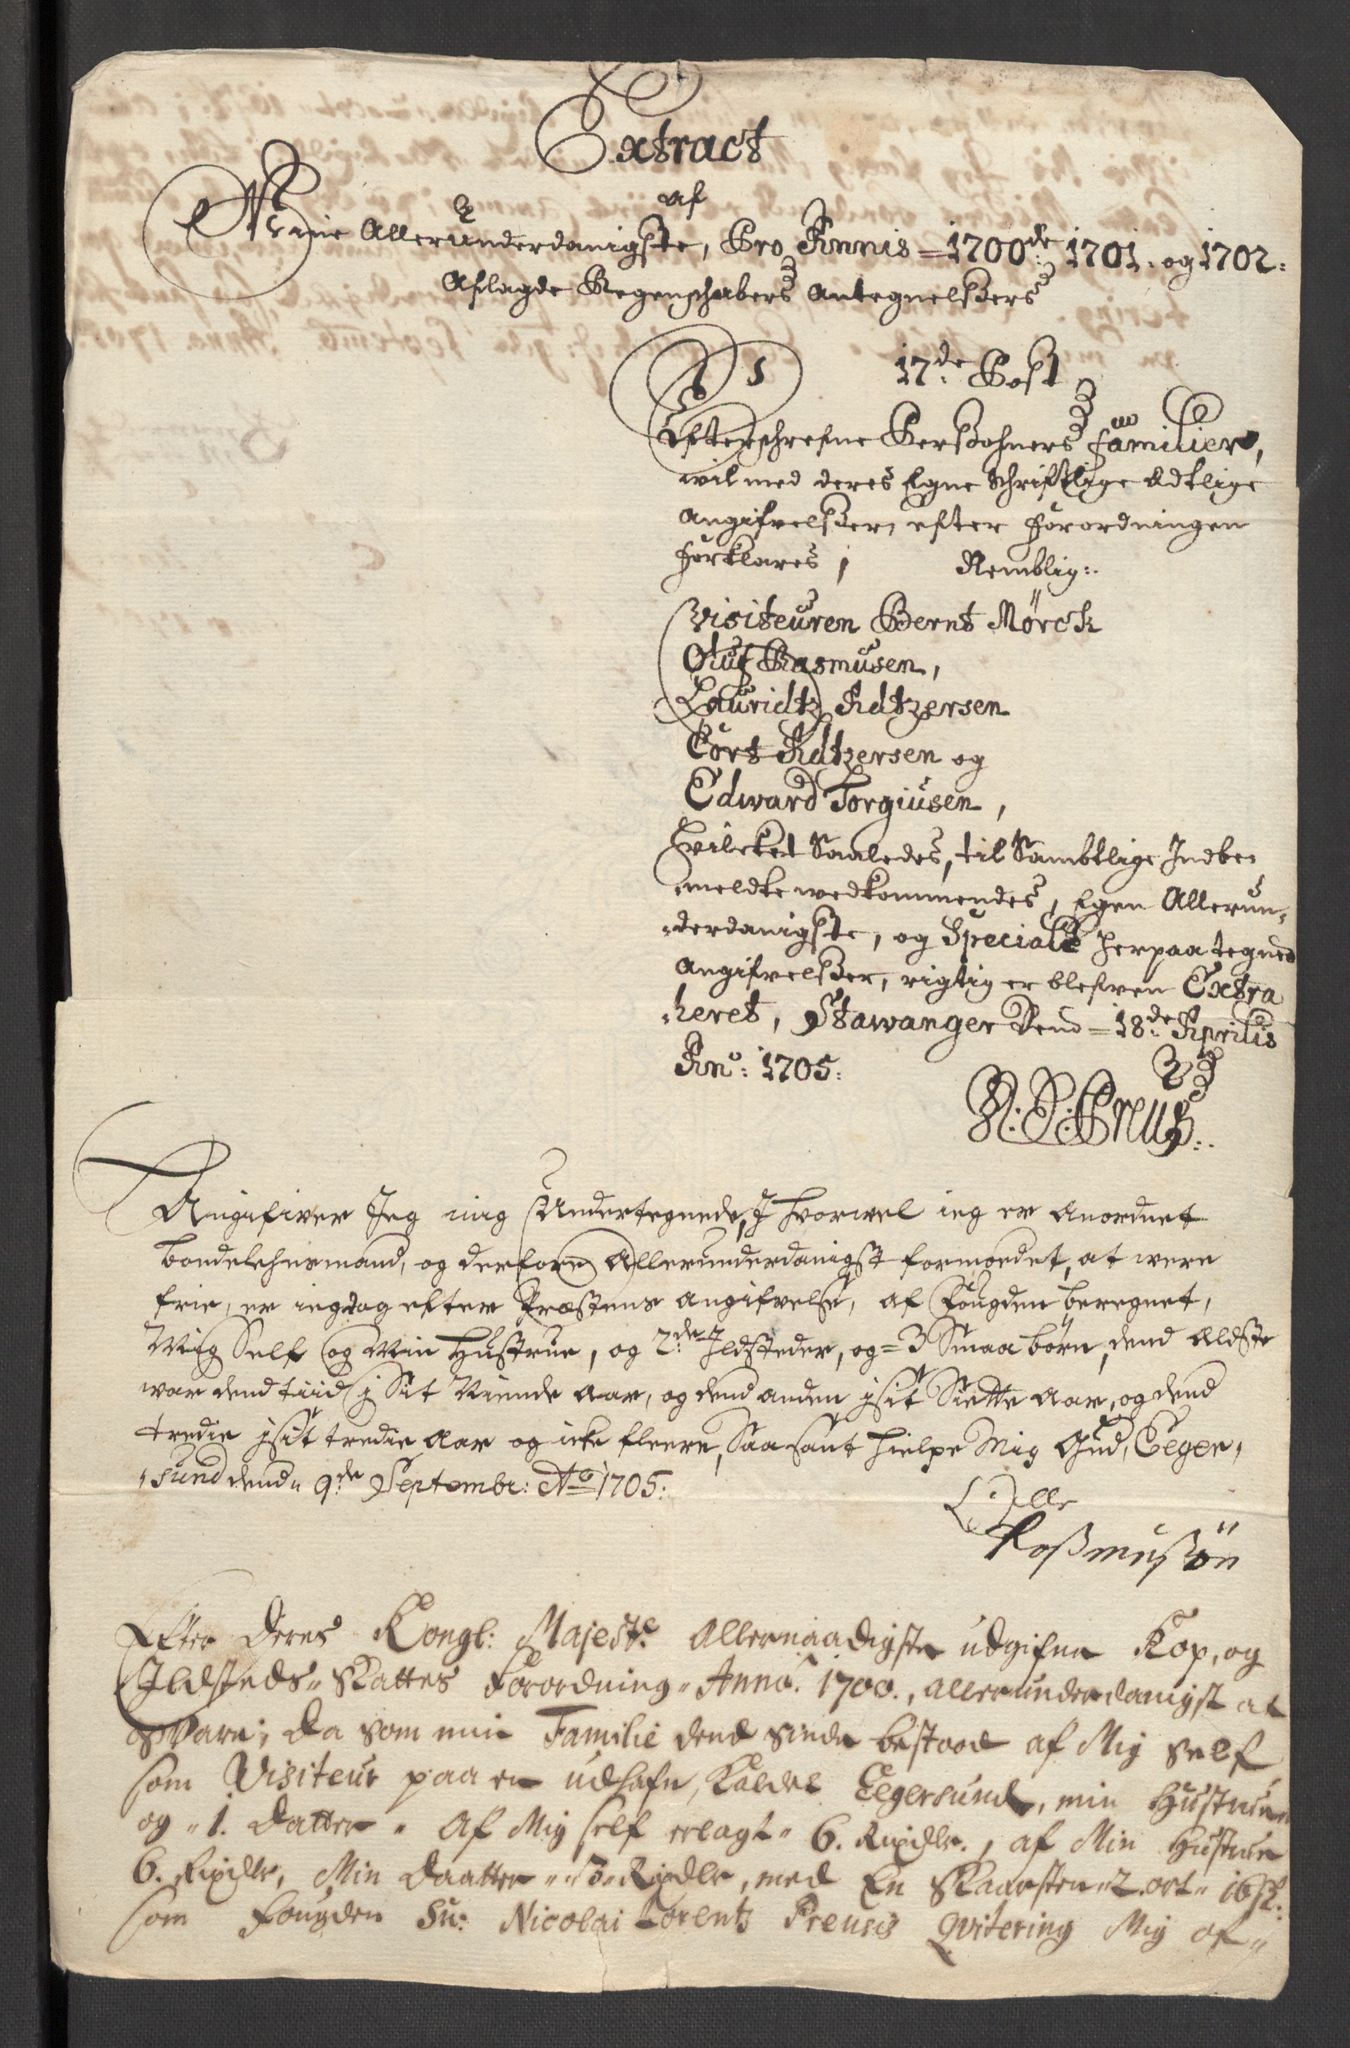 Extract
af
Mine Allerunderdanigste, Pro Annis = 1700de 1701. og 1702:
Aflagde Regenschabers Antegnelßers
17de Post
Efterschrefne Perßohners Familier,
wil med deres Egne schriftlige Edtlige
Angifvelßer, efter Forordningen
Forklares, Nemblig:
Visiteuren Bernt Mörck
Oluf Rasmusen,
Lauridtz Adtzersen
Cort Adtzersen og
Edward Torgiusen,
Hvilcket Saaledes, til Sambtlige Indbe-
meldte wedkommendes, Egen Allerun-
-derdanigste, og Speciale herpaategned
Angifvelßer, rigtig er blefven Extra
-heret, Stawanger Dend = 18de Aprilis
Ano: 1705:
N: L: Preuß:
Angifwer Jeg mig Undertegnede, I hvorwel ieg er Anordnet
bondelehnsmand, og derfore Allerunderdanigst formoedet, at were
frie, er ieg dog efter Præstens angifvelse, af Fougden beregnet,
Mig Self og Min Hustrue, og 2de Ildsteder, og = 3 Smaa børn, dend Eldste
war dend tiid j Sit Niende Aar, og dend anden j sit Siette Aar, og dend
tredie j sit tredie Aar og icke fleere, Saa sant hielpe Mig Gud, Eeger-
-sund dend 9de Septembr: Ao 1705:
Olle
Roßmußøn
Efter Deres Kongl: Majests Allernaadigste udgifne Kop, og
Ildsteds-Skattes Forordning Anno. 1700., allerunderdanigst at
Svare; Da som min Familie dend sinde bestood af Mig self
som Visiteur paa en udhafn, kaldet Eegersund, min Hustrue
og 1. Datter. Af Mig self erlagt 6. Rixdlr., af Min Hustrue
6. Rixdlr, Min Daatter 3 Rixdlr, med En Skaarsten 2. ort 16 s:
som Fougden Sr: Nicolai Lorentz Preusis Qvitering Mig af-